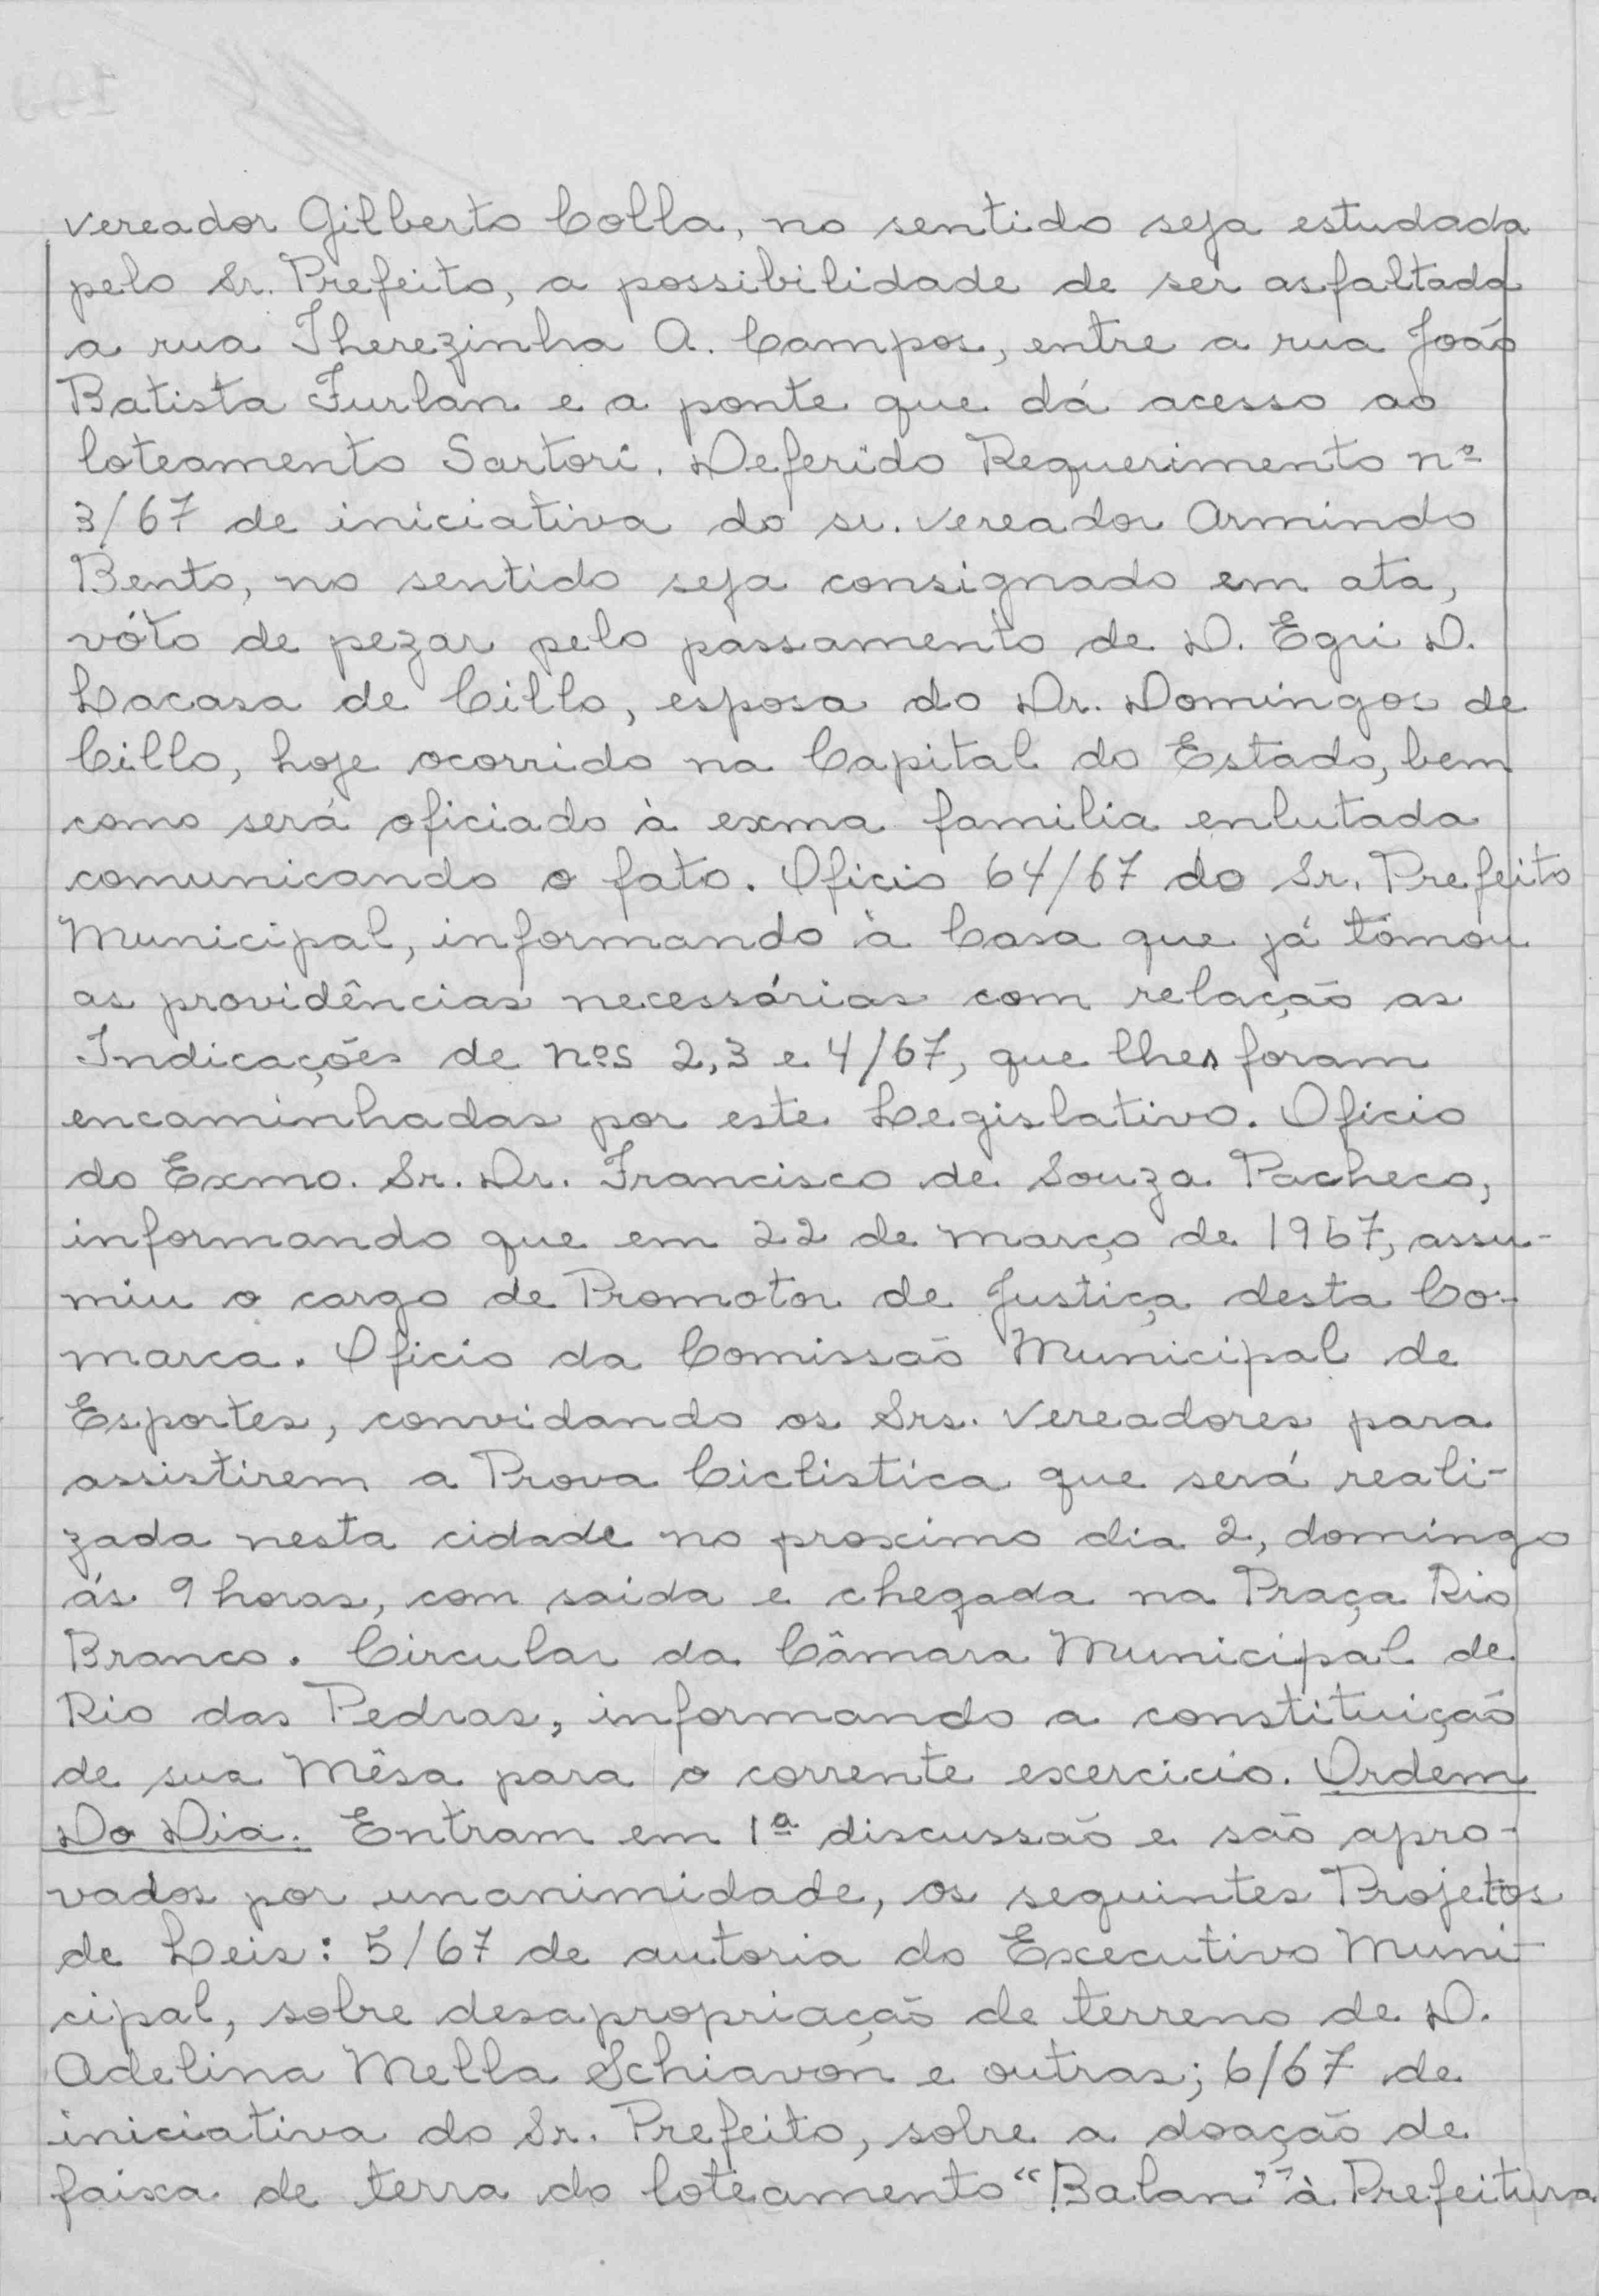 vereador Gilberto Colla, no sentido seja estudada
pelo Sr. Prefeito, a possibilidade de ser asfaltada
a rua Therezinha A. Campos, entre a rua João
Batista Furlan e a ponte que dá acesso ao
loteamento Sartori. Deferido Requerimento nº
3/67 de iniciativa do sr. vereador Armindo
Bento, no sentido seja consignado em ata,
vóto de pezar pelo passamento de D. Egri D.
Lacasa de Cillo, esposa do Dr. Domingos de
Cillo, hoje ocorrido na Capital do Estado, bem
como será oficiado à exma familia enlutada
comunicando o fato. Oficio 64/67 do Sr. Prefeito
Municipal, informando à Casa que já tomou
as providências necessárias com relação as
Indicações de nºs 2, 3 e 4/67, que lhes foram
encaminhadas por este Legislativo. Oficio
do Exmo. Sr. Dr. Francisco de Souza Pacheco,
informando que em 22 de março de 1967, assu-
miu o cargo de Promotor de Justiça desta Co-
marca. Oficio da Comissão Municipal de
Esportes, convidando os Srs. Vereadores para
assistirem a Prova Ciclistica que será reali-
zada nesta cidade no proximo dia 2, domingo
ás 9 horas, com saida e chegada na Praça Rio
Branco. Circular da Câmara Municipal de
Rio das Pedras, informando a constituição
de sua Mêsa para o corrente exercicio. Ordem
Do Dia. Entram em 1ª discussão e são apro-
vados por unanimidade, os seguintes Projetos
de Leis: 5/67 de autoria do Executivo Muni-
cipal, sobre desapropriação de terreno de D.
Adelina Mella Schiavon e outras; 6/67 de
iniciativa do Sr. Prefeito, sobre a doação de
faixa de terra do loteamento "Balan" à Prefeitura